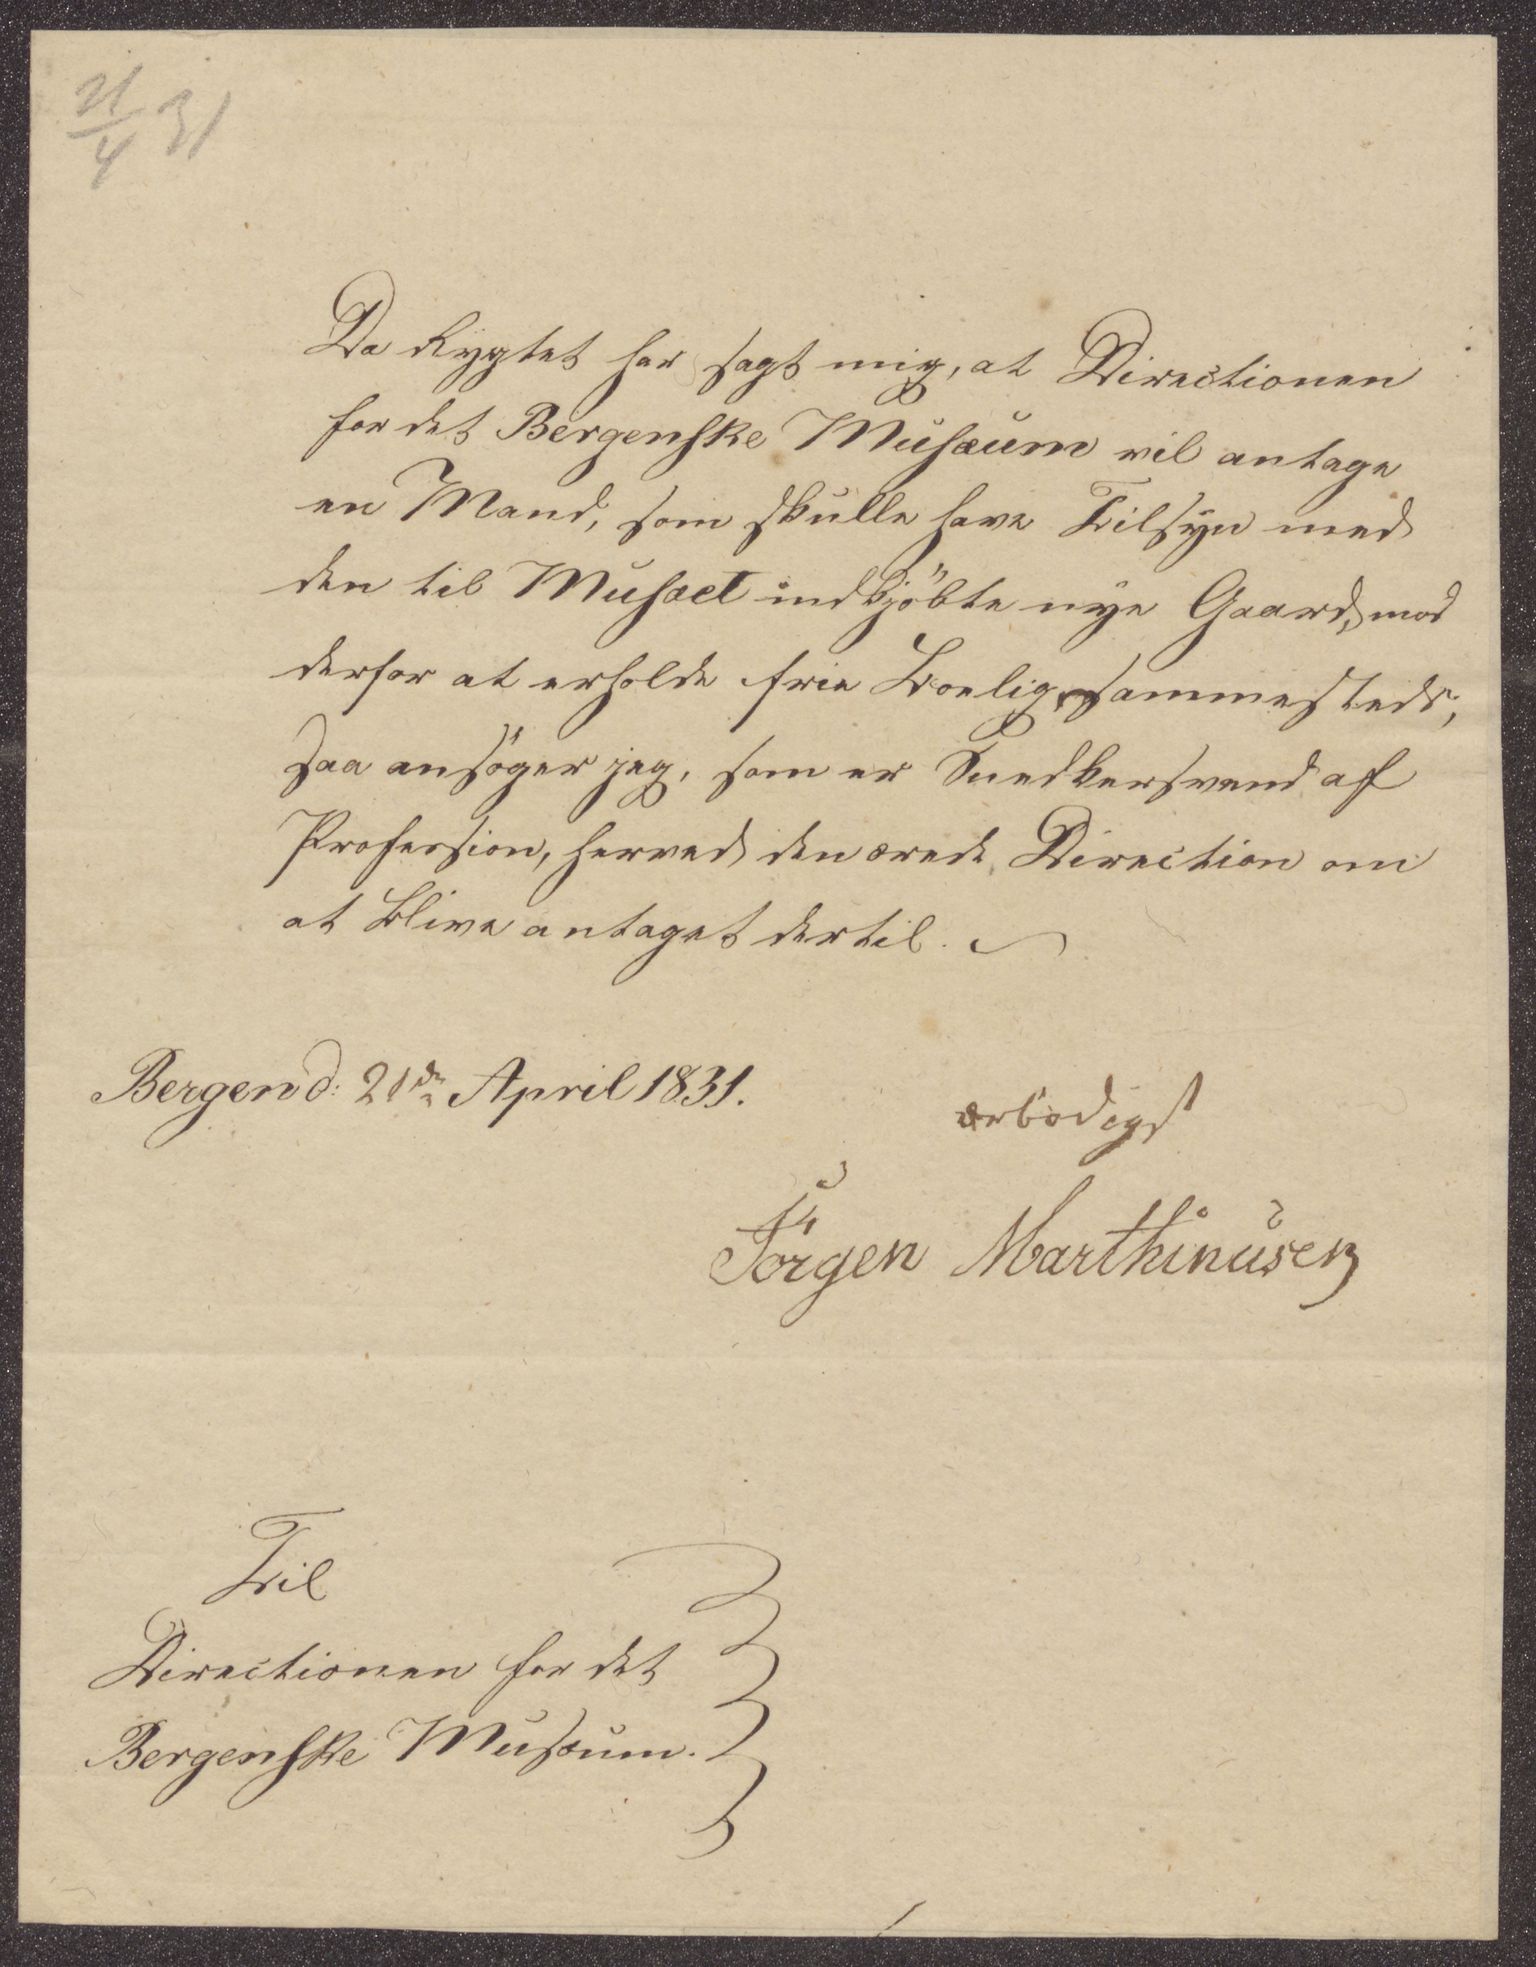 21/4 31
Da Rygtet har sagt mig, at Directionen
for det Bergenske Musæum vil antage
en Mand, som skulle have Tilsyn med
den til Musæet indkjöbte nye Gaard, mod
derfor at erholde frie Boelig sammesteds;
saa ansöger jeg, som er Snedkersvend af
Profession, herved den ærede Direction om
at blive antaget dertil.
Bergen d: 21de April 1831.
ærbödigst
Jörgen Marthinusen
Til
Directionen for det
Bergenske Musæum.